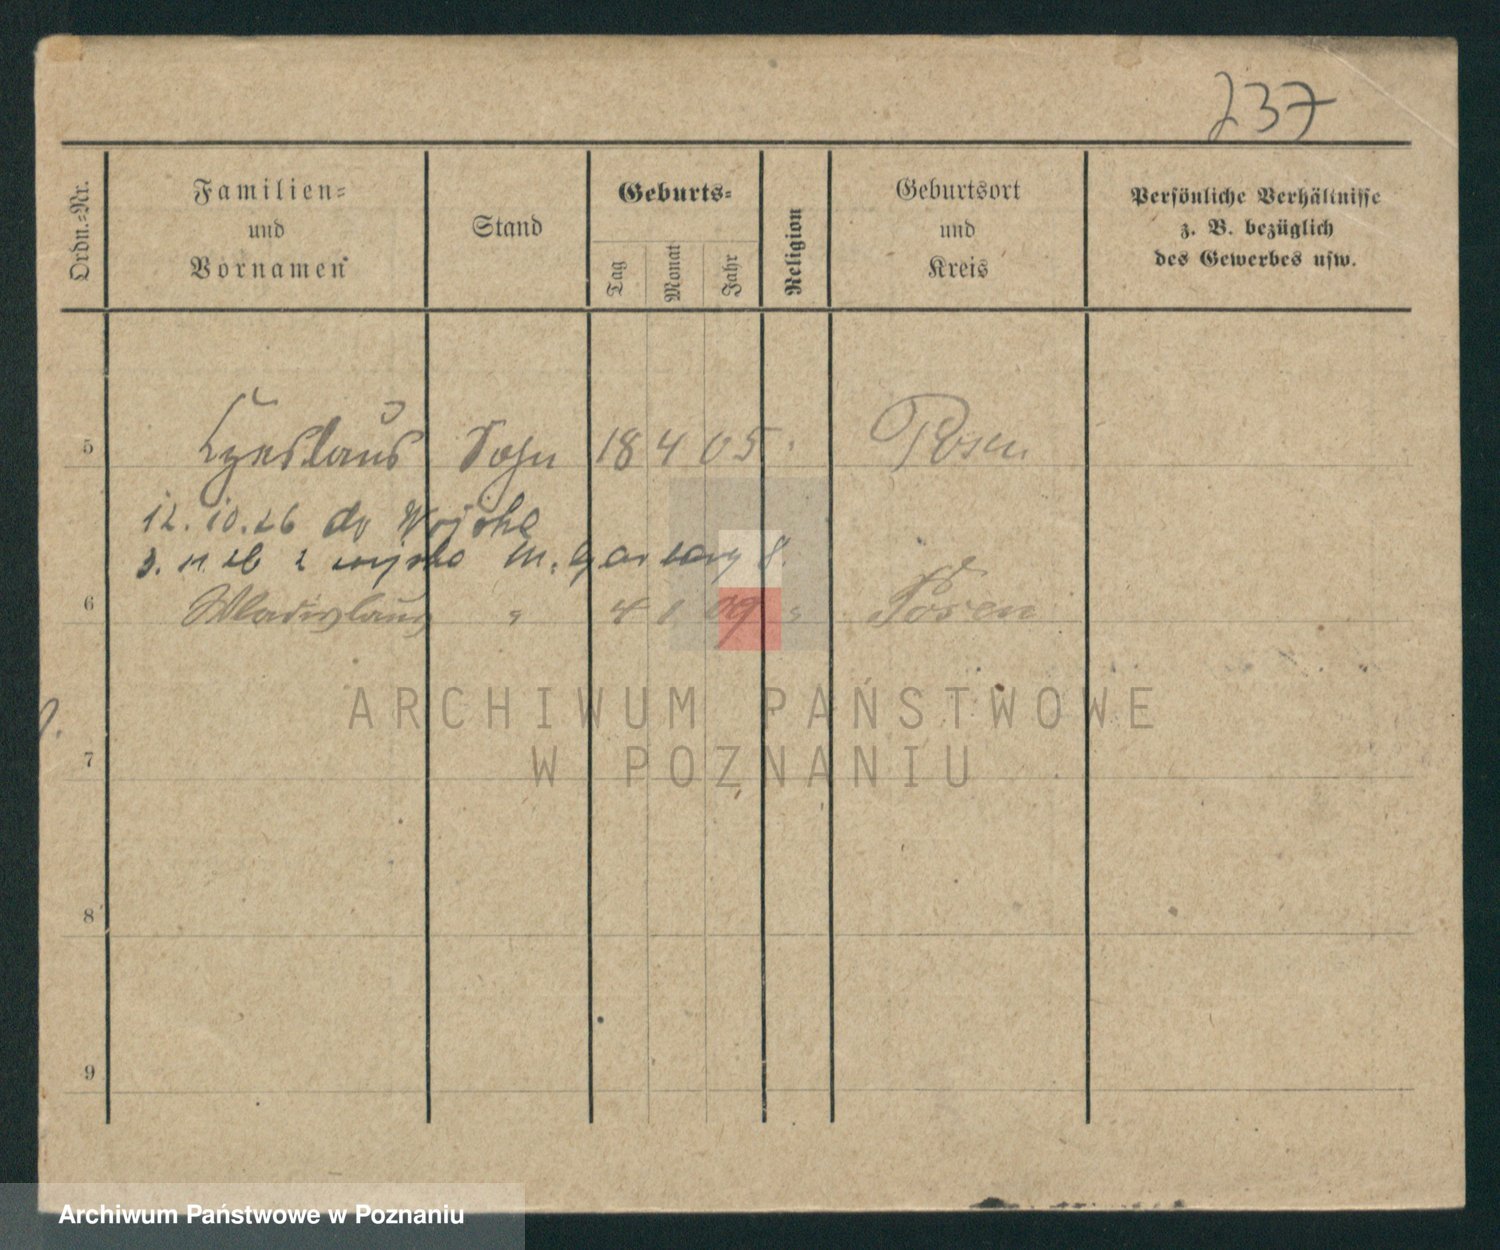 237
Ordn.-Nr.
Familien-
und
Vornamen
Stand
Geburts-
Tag
Monat
Jahr
Religion
Geburtsort
und
Kreis
Persönliche Verhältnisse
z. B. bezüglich
des Gewerbes usw.
5 Czeslaus Sohn 18 4 05 Posen
12.10.26 do Wojska
3. 11. 26 z wojska M. Garbary 8.
6 Wladislaus " 4 1 09 " Posen
ARCHIWUM PAŃSTWOWE
W POZNANIU
7
8
9
Archiwum Państwowe w Poznaniu